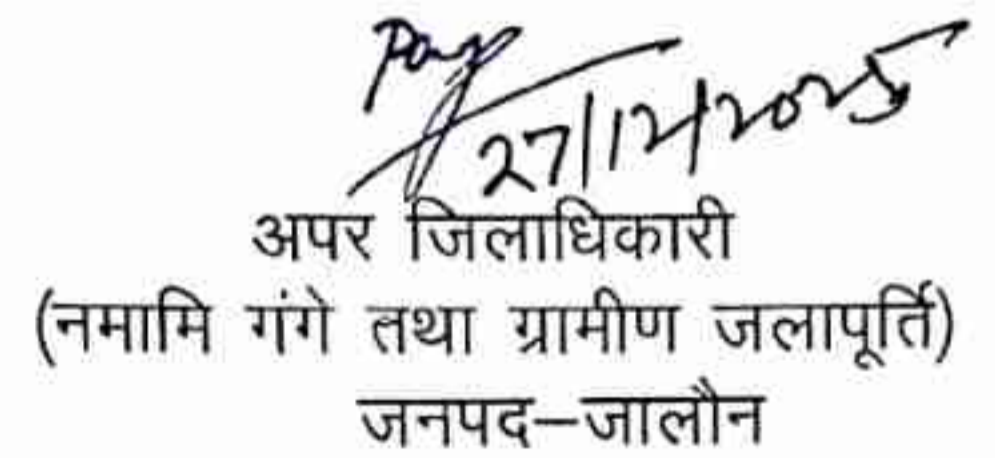 27/12/2025
अपर जिलाधिकारी
(नमामि गंगे तथा ग्रामीण जलापूर्ति)
जनपद–जालौन